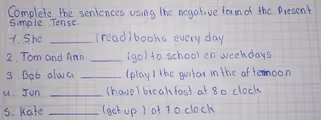 Complete the sentences using the negative form of the Present
Simple Tense.
1. She ______ (read) books every day
2. Tom and Ann ______ (go) to school on weekdays
3. Bob alwa ______ (play) the guitar in the afternoon
4. Jun ______ (have) breakfast at 8 o clock
5. Kate ______ (get up) at 7 o clock